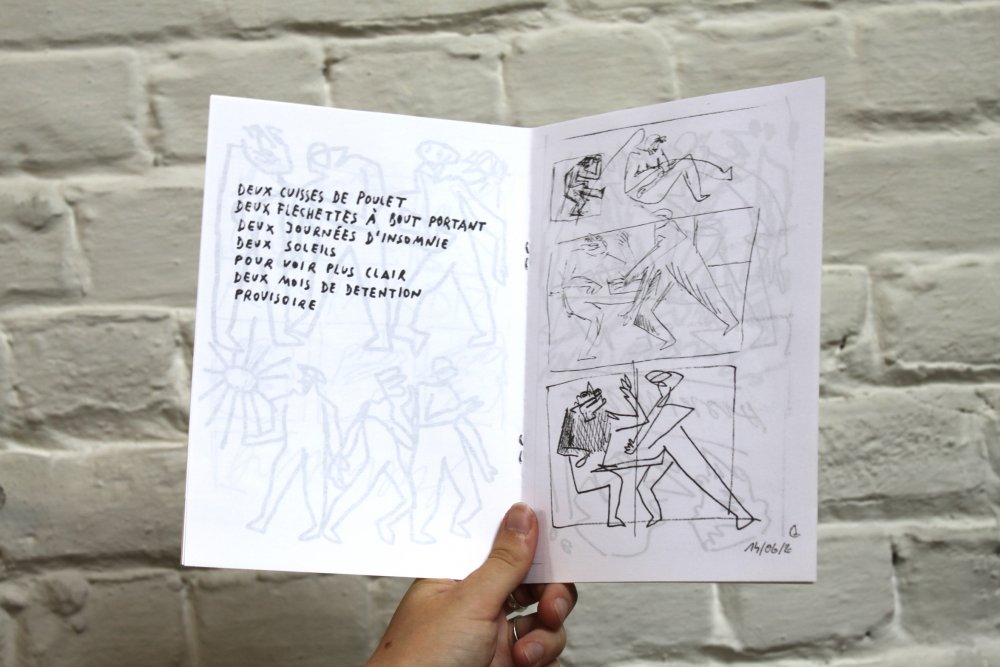 DEUX CUISSES DE POULET
DEUX FLECHETTES À BOUT PORTANT
DEUX JOURNÉES D'INSOMNIE
DEUX SOLEILS
POUR VOIR PLUS CLAIR
DEUX MOIS DE DETENTION
PROVISOIRE